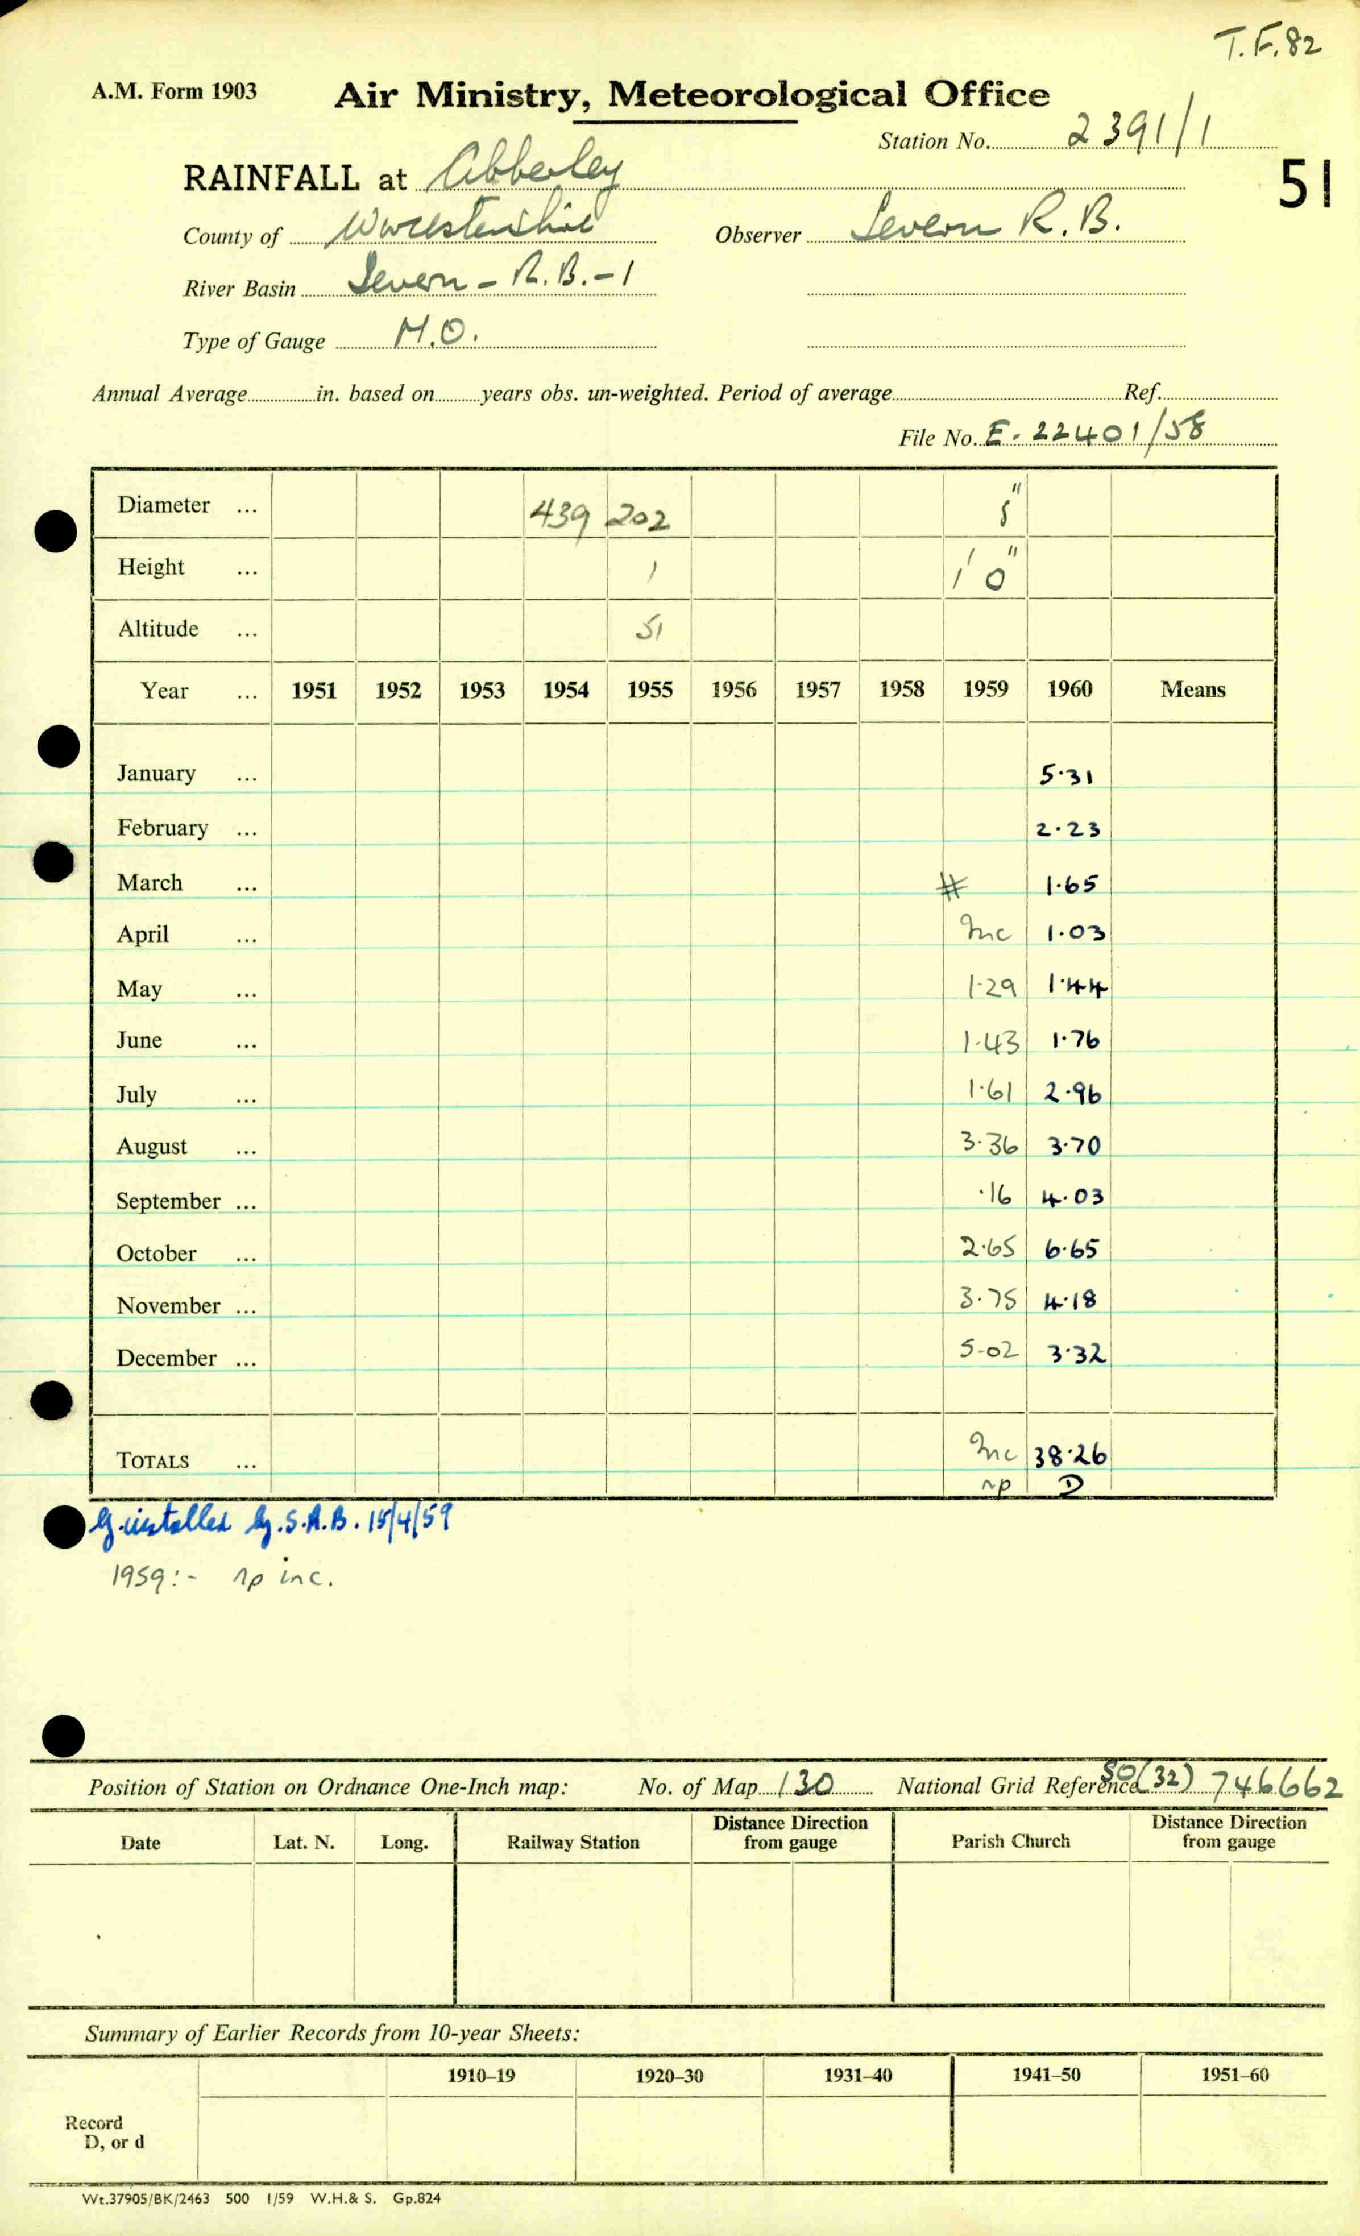 T.F.82
A.M. Form 1903 Air Ministry, Meteorological Office
Station No. 2391/1
RAINFALL at Abberley 51
County of Worcestershire Observer Severn R.B.
River Basin Severn - R.B. - 1
Type of Gauge M.O.
Annual Average in. based on years obs. un-weighted. Period of average Ref.
File No. E. 22401/58
Diameter ... 439 202 5"
Height ... 1 1' 0"
Altitude ... 51
Year ... 1951 1952 1953 1954 1955 1956 1957 1958 1959 1960 Means
January ... 5.31
February ... 2.23
March ... # 1.65
April ... Inc 1.03
May ... 1.29 1.44
June ... 1.43 1.76
July ... 1.61 2.96
August ... 3.36 3.70
September ... .16 4.03
October ... 2.65 6.65
November ... 3.75 4.18
December ... 5.02 3.32
TOTALS ... Inc 38.26
np D
G. installed by S.R.B. 15/4/59
1959:- np inc.
Position of Station on Ordnance One-Inch map: No. of Map 130 National Grid Reference SO(32) 746662
Date Lat. N. Long. Railway Station Distance Direction from gauge Parish Church Distance Direction from gauge
Summary of Earlier Records from 10-year Sheets:
1910–19 1920–30 1931–40 1941–50 1951–60
Record
D, or d
Wt.37905/BK/2463 500 1/59 W.H.& S. Gp.824